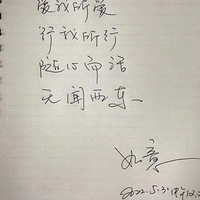 爱我所爱
行我所行
随心而活
无问西东
如意
2022.5.31